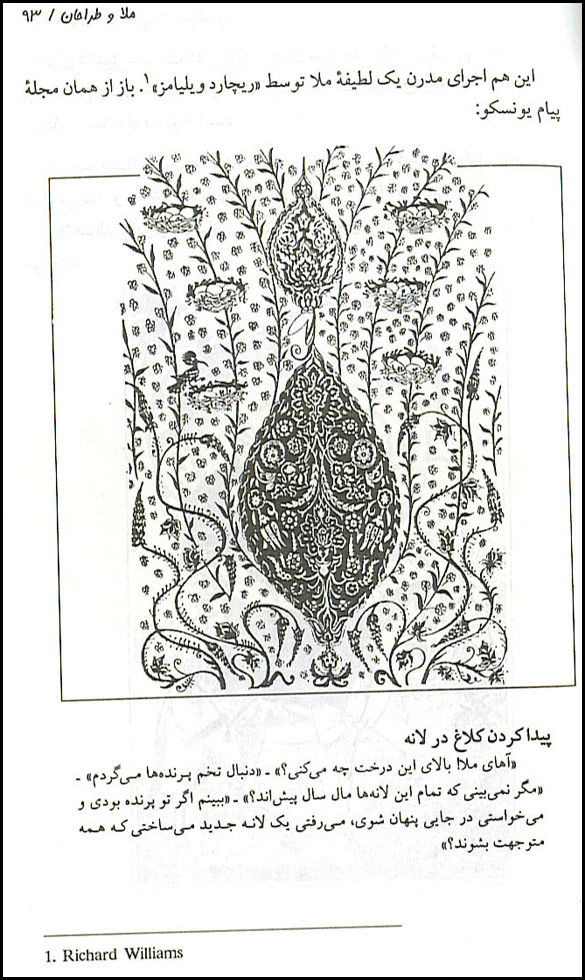 ملا و طراحان / ۹۳
این هم اجرای مدرن یک لطیفهٔ ملا توسط «ریچارد ویلیامز»۱. باز از همان مجلهٔ
پیام یونسکو:
پیدا کردن کلاغ در لانه
«آهای ملا! بالای این درخت چه می‌کنی؟» ـ «دنبال تخم پرنده‌ها می‌گردم» ـ
«مگر نمی‌بینی که تمام این لانه‌ها مال سال پیش‌اند؟» ـ «ببینم اگر تو پرنده بودی و
می‌خواستی در جایی پنهان شوی، می‌رفتی یک لانه جدید می‌ساختی که همه
متوجهت بشوند؟»
1. Richard Williams